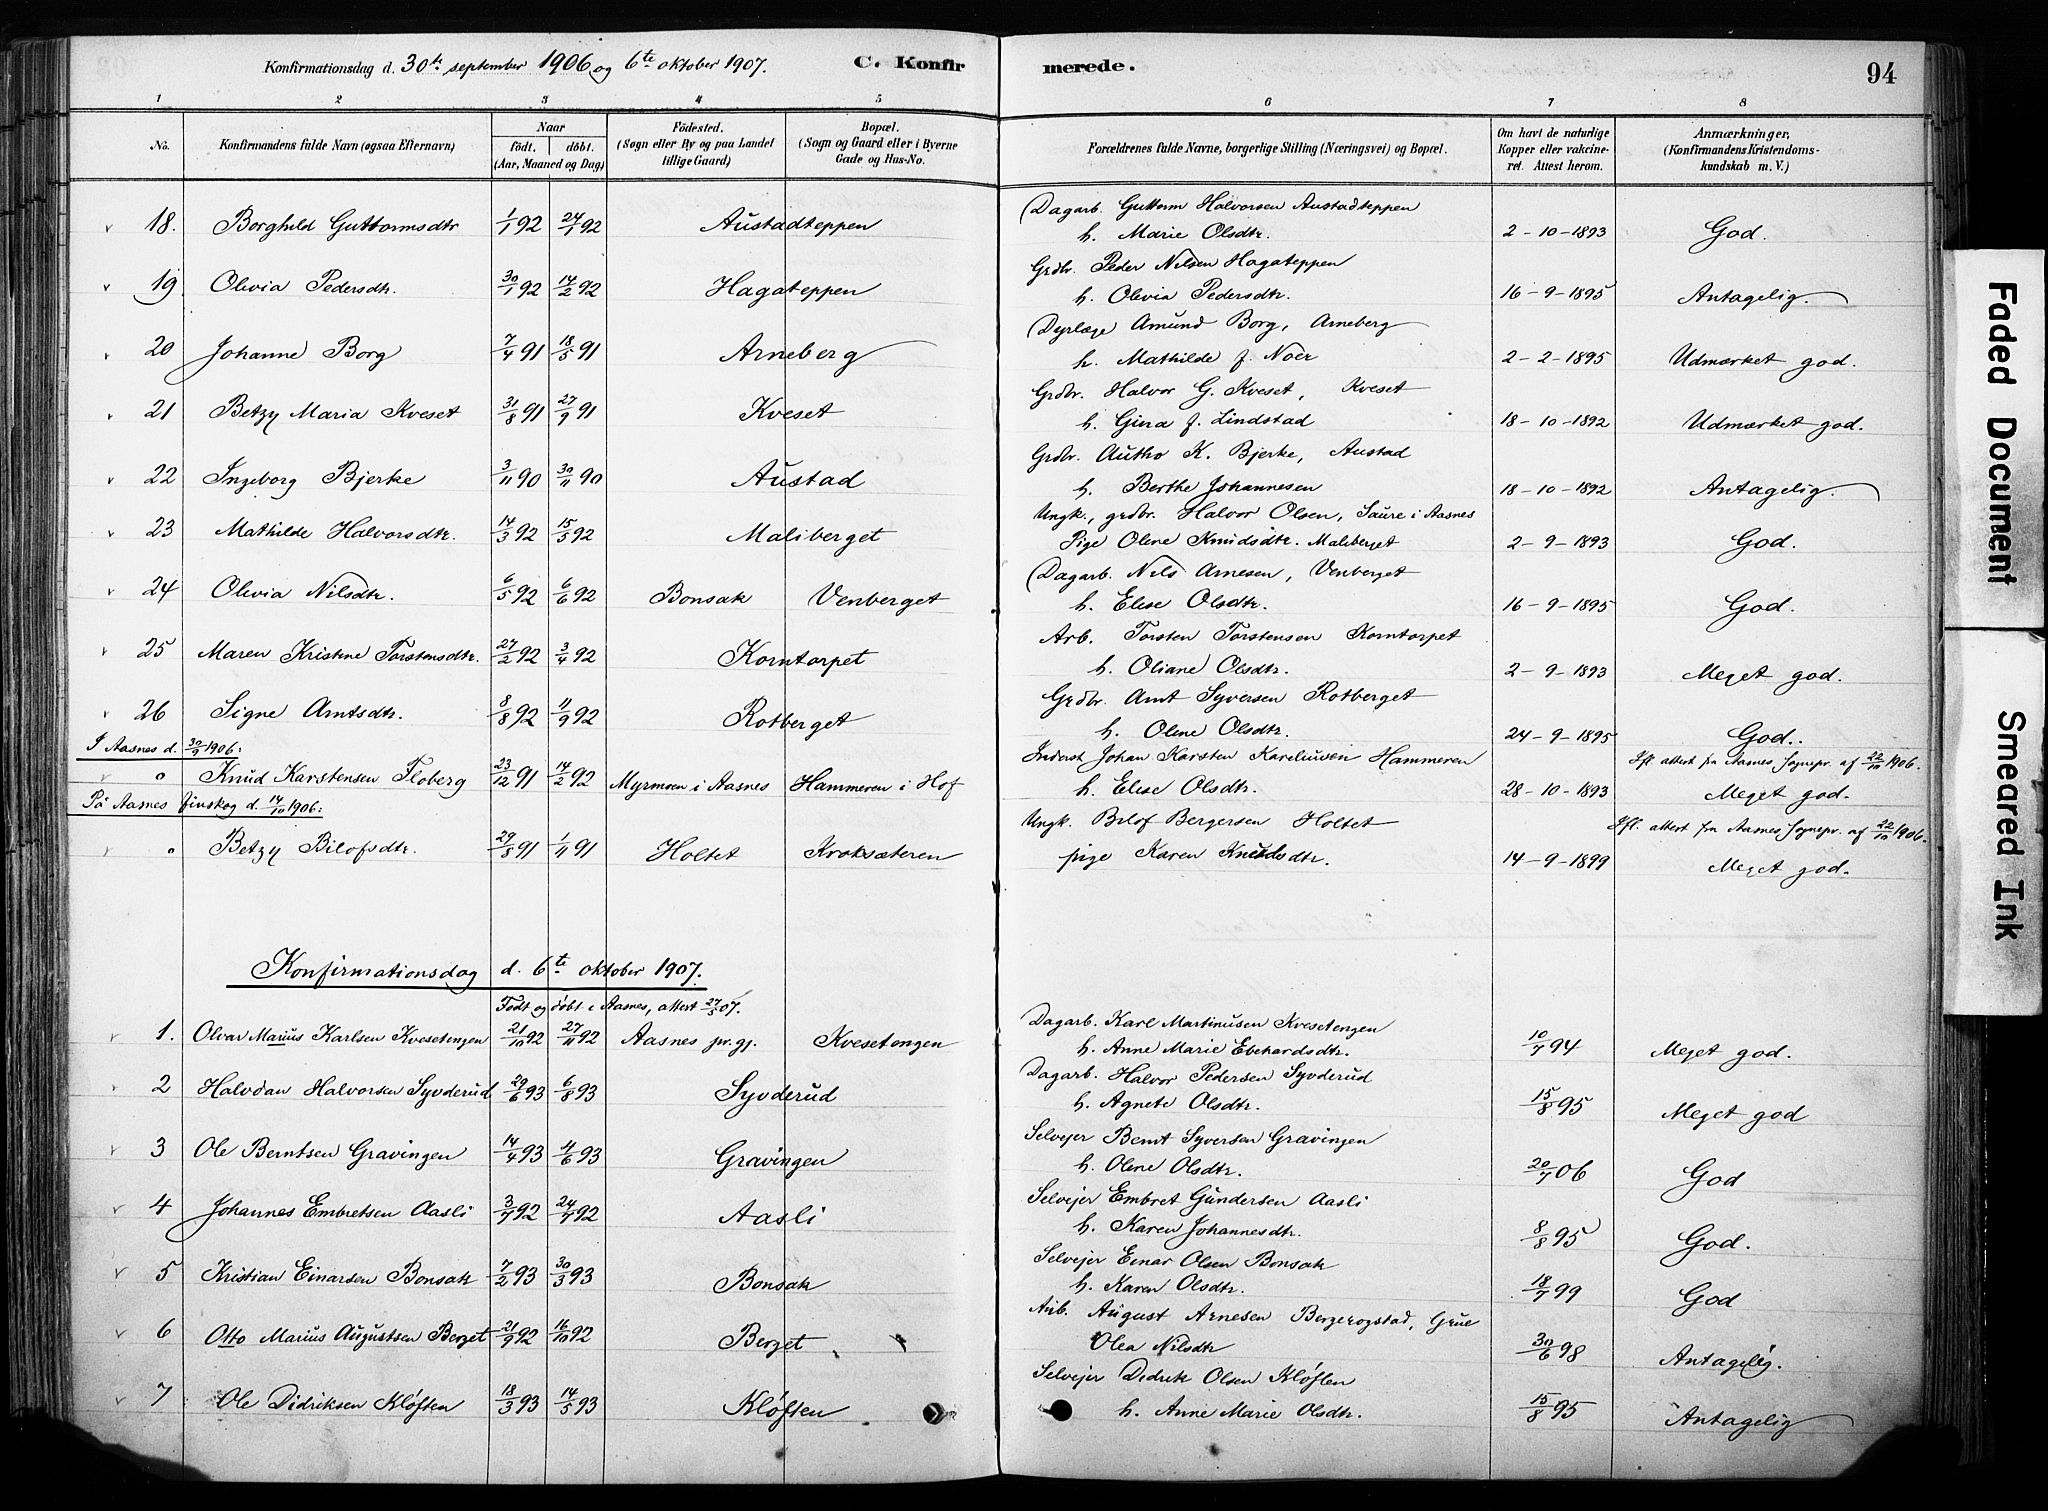 Konfirmationsdag d. 30te september 1906 og 6te oktober 1907. C. Konfirmerede. 94
1 2 3 4 5 6 7 8
No. Konfirmandens fulde Navn (ogsaa Efternavn) Naar født. døbt. (Aar, Maaned og Dag) Fødested. (Sogn eller By og paa Landet tillige Gaard) Bopæl. (Sogn og Gaard eller i Byerne Gade og Hus-No. Forældrenes fulde Navne, borgerlige Stilling (Næringsvei) og Bopæl. Om havt de naturlige Kopper eller vakcineret. Attest herom. Anmærkninger, (Konfirmandens Kristendomskundskab m. V.)
18. Borghild Guttormsdtr 1/1 92 24/1 92 Austadteppen Dagarb. Guttorm Halvorsen Austadteppen
h. Marie Olsdtr. 2-10-1893 God.
19. Olivia Pedersdtr. 30/1 92 14/2 92 Hagateppen Grdbr. Peder Nilsen Hagateppen
h. Olivia Pedersdtr. 16-9-1895 Antagelig.
20 Johanne Borg 7/4 91 18/5 91 Arneberg Dyrlæge Amund Borg, Arneberg
h. Mathilde f. Noer 2-2-1895 Udmærket god.
21 Betzy Maria Kveset 31/8 91 27/9 91 Kveset Grdbr. Halvor G. Kveset, Kveset
h. Gina f. Lindstad 18-10-1892 Udmærket god.
22 Ingeborg Bjerke 3/11 90 30/11 90 Austad Grdbr. Autho K. Bjerke, Austad
h. Berthe Johannesen 18-10-1892 Antagelig.
23 Mathilde Halvorsdtr. 14/3 92 15/5 92 Maliberget Ungk., grdbr. Halvor Olsen, Saure i Aasnes
Pige Olene Knudsdtr. Maliberget 2-9-1893 God.
24 Olivia Nilsdtr. 6/5 92 6/6 92 Bonsak Venberget Dagarb. Nils Arnesen, Venberget
h. Elise Olsdtr. 16-9-1895 God.
25 Maren Kristine Torstensdtr. 27/2 92 3/4 92 Korntorpet Arb. Torsten Torstensen Korntorpet
h. Oliane Olsdtr. 2-9-1893 Meget god.
26 Signe Arntsdtr. 8/8 92 11/9 92 Rotberget Grdbr. Arnt Syversen Rotberget
h. Olene Olsdtr. 24-9-1895 God.
I Aasnes d. 30/9 1906:
" Knud Karstensen Floberg 23/12 91 14/2 92 Myrmoen i Aasnes Hammeren i Hof Inderst Johan Karsten Hammeren Ifl. attest fra Aasnes sognepr. af 22/10 1906.
h. Elise Olsdtr. 28-10-1893 Meget god.
På Aasnes finskog d. 14/10 1906:
" Betzy Bilofsdtr. 29/8 91 1/11 91 Holtet Kroksæteren Ungk. Bilof Bergersen Holtet Ifl. attest fra Aasnes sognepr. af 22/10 1906.
pige Karen Knudsdtr. 14-9-1899 Meget god.
Konfirmationsdag d. 6te oktober 1907.
Født og døbt i Aasnes, attest 27/5 07.
1. Olvar Marius Karlsen Kvesetengen 21/10 92 27/11 92 Aasnes pr.gj. Kvesetengen Dagarb. Karl Martinusen Kvesetengen
h. Anne Marie Evehardsdtr. 10/7 94 Meget god.
2 Halvdan Halvorsen Syvderud 29/6 93 6/8 93 Syvderud Dagarb. Halvor Pedersen Syvderud
h. Agnete Olsdtr. 15/8 95 Meget god
3 Ole Berntsen Gravingen 14/4 93 4/6 93 Gravingen Selvejer Bernt Syversen Gravingen
h. Olene Olsdtr. 20/7 06 God
4 Johannes Embretsen Aasli 3/7 92 24/7 92 Aasli Selvejer Embret Gundersen Aasli
h. Karen Johannesdtr. 8/8 95 God.
5 Kristian Einarsen Bonsak 7/2 93 30/3 93 Bonsak Selvejer Einar Olsen Bonsak
h. Karen Olsdtr. 18/7 99 God
6 Otto Marius Augustsen Berget 21/9 92 16/10 92 Berget Arb. August Arnesen Bergerogstad, Grue
Olea Nilsdtr 30/6 98 Antagelig.
7 Ole Didriksen Kløften 18/3 93 14/5 93 Kløften Selvejer Didrik Olsen Kløften
h. Anne Marie Olsdtr. 15/8 95 Antagelig
Faded Document
Smeared Ink